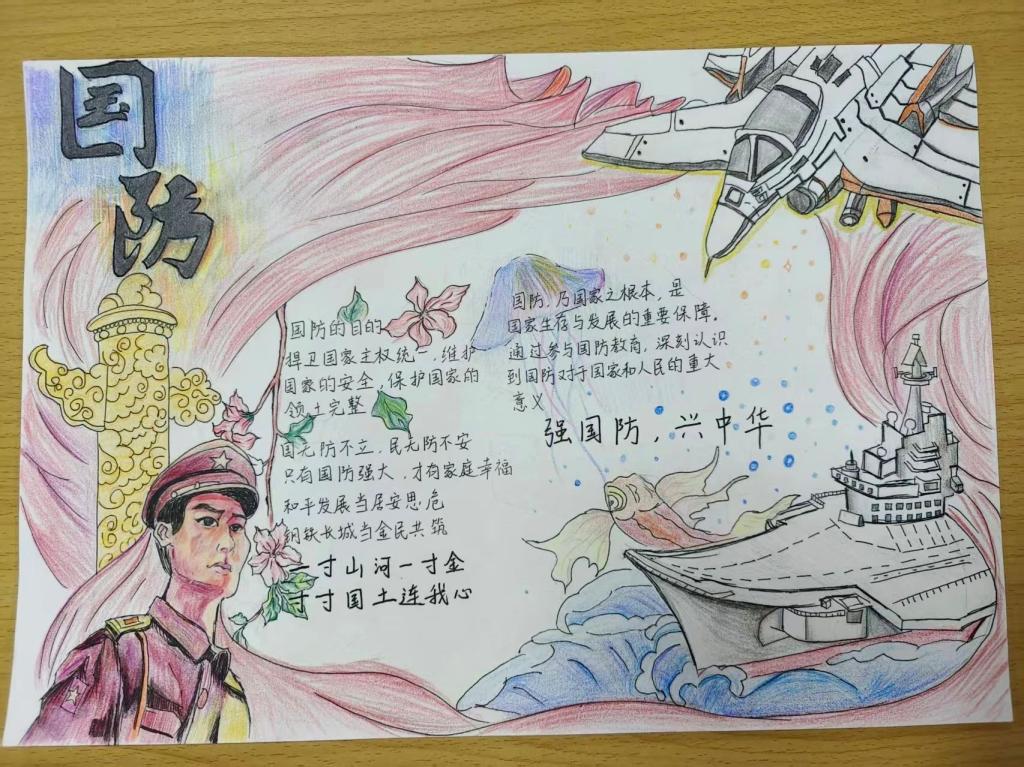 国防
国防的目的
捍卫国家主权统一,维护
国家的安全,保护国家的
领土完整
国无防不立,民无防不安
只有国防强大,才有家庭幸福
和平发展当居安思危
钢铁长城当全民共筑
一寸山河一寸金
寸寸国土连我心
国防,乃国家之根本,是
国家生存与发展的重要保障。
通过参与国防教育,深刻认识
到国防对于国家和人民的重大
意义
强国防,兴中华